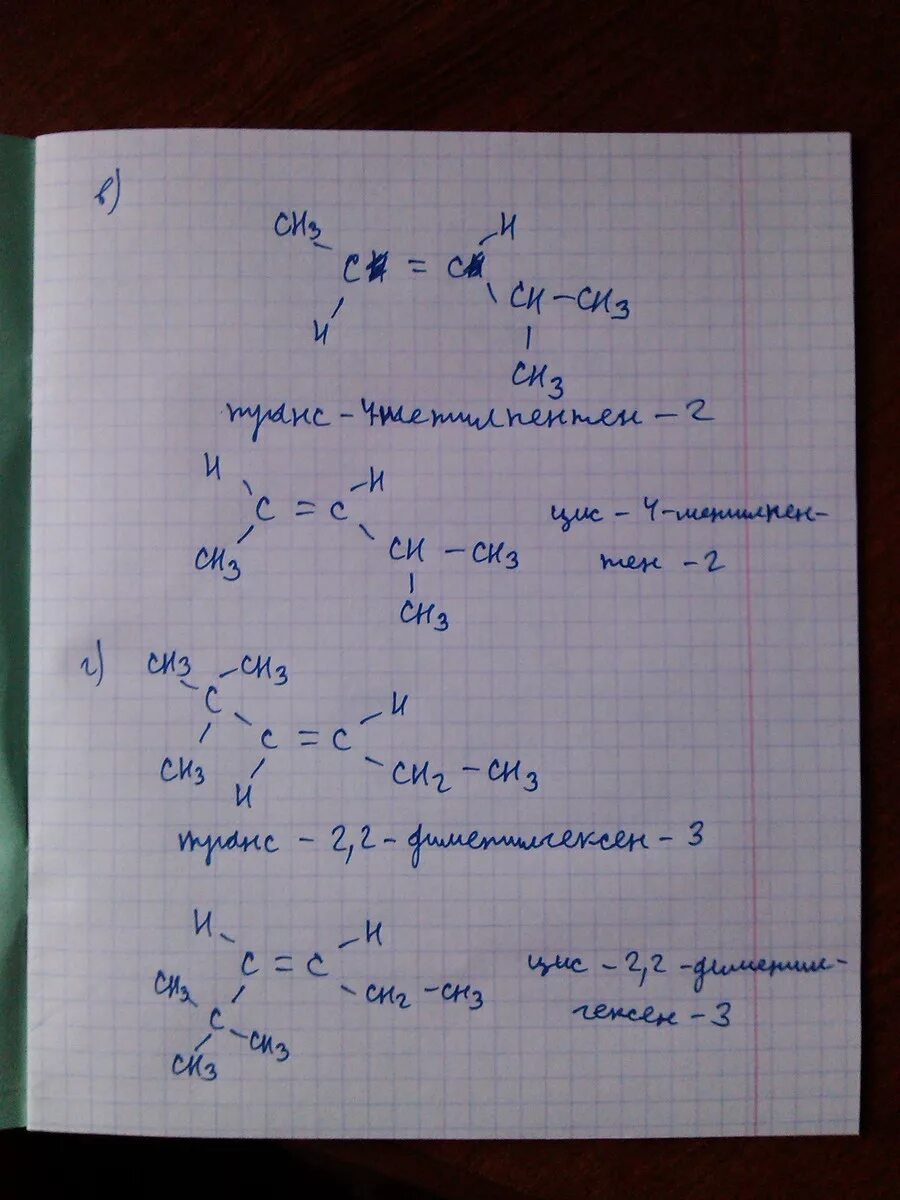 в)
CH3 H
C = C
H CH – CH3
CH3
транс – 4метилпентен – 2
H H
C = C
CH3 CH – CH3
CH3
цис – 4-метилпен-
тен – 2
г) CH3 CH3
C
H
C = C
CH3 CH2 – CH3
H
транс – 2,2 – диметилгексен – 3
H H
C = C
CH3 CH2 – CH3
C
CH3 CH3
цис – 2,2 – диметил-
гексен – 3